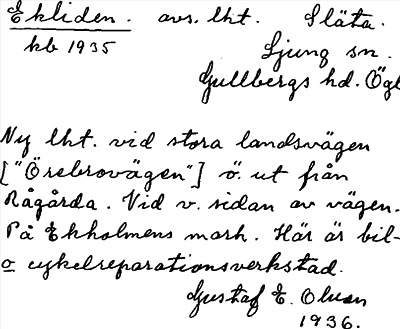 Ekliden. avs. lht. Släta.
kb 1935
Ljung sn.
Gullbergs hd. Ögl
Ny lht. vid stora landsvägen
["Örebrovägen"] ö. ut från
Rågårda. Vid v. sidan av vägen.
På Ekholmens mark. Här är bil-
o cykelreparationsverkstad.
Gustaf E. Olsson
1936.